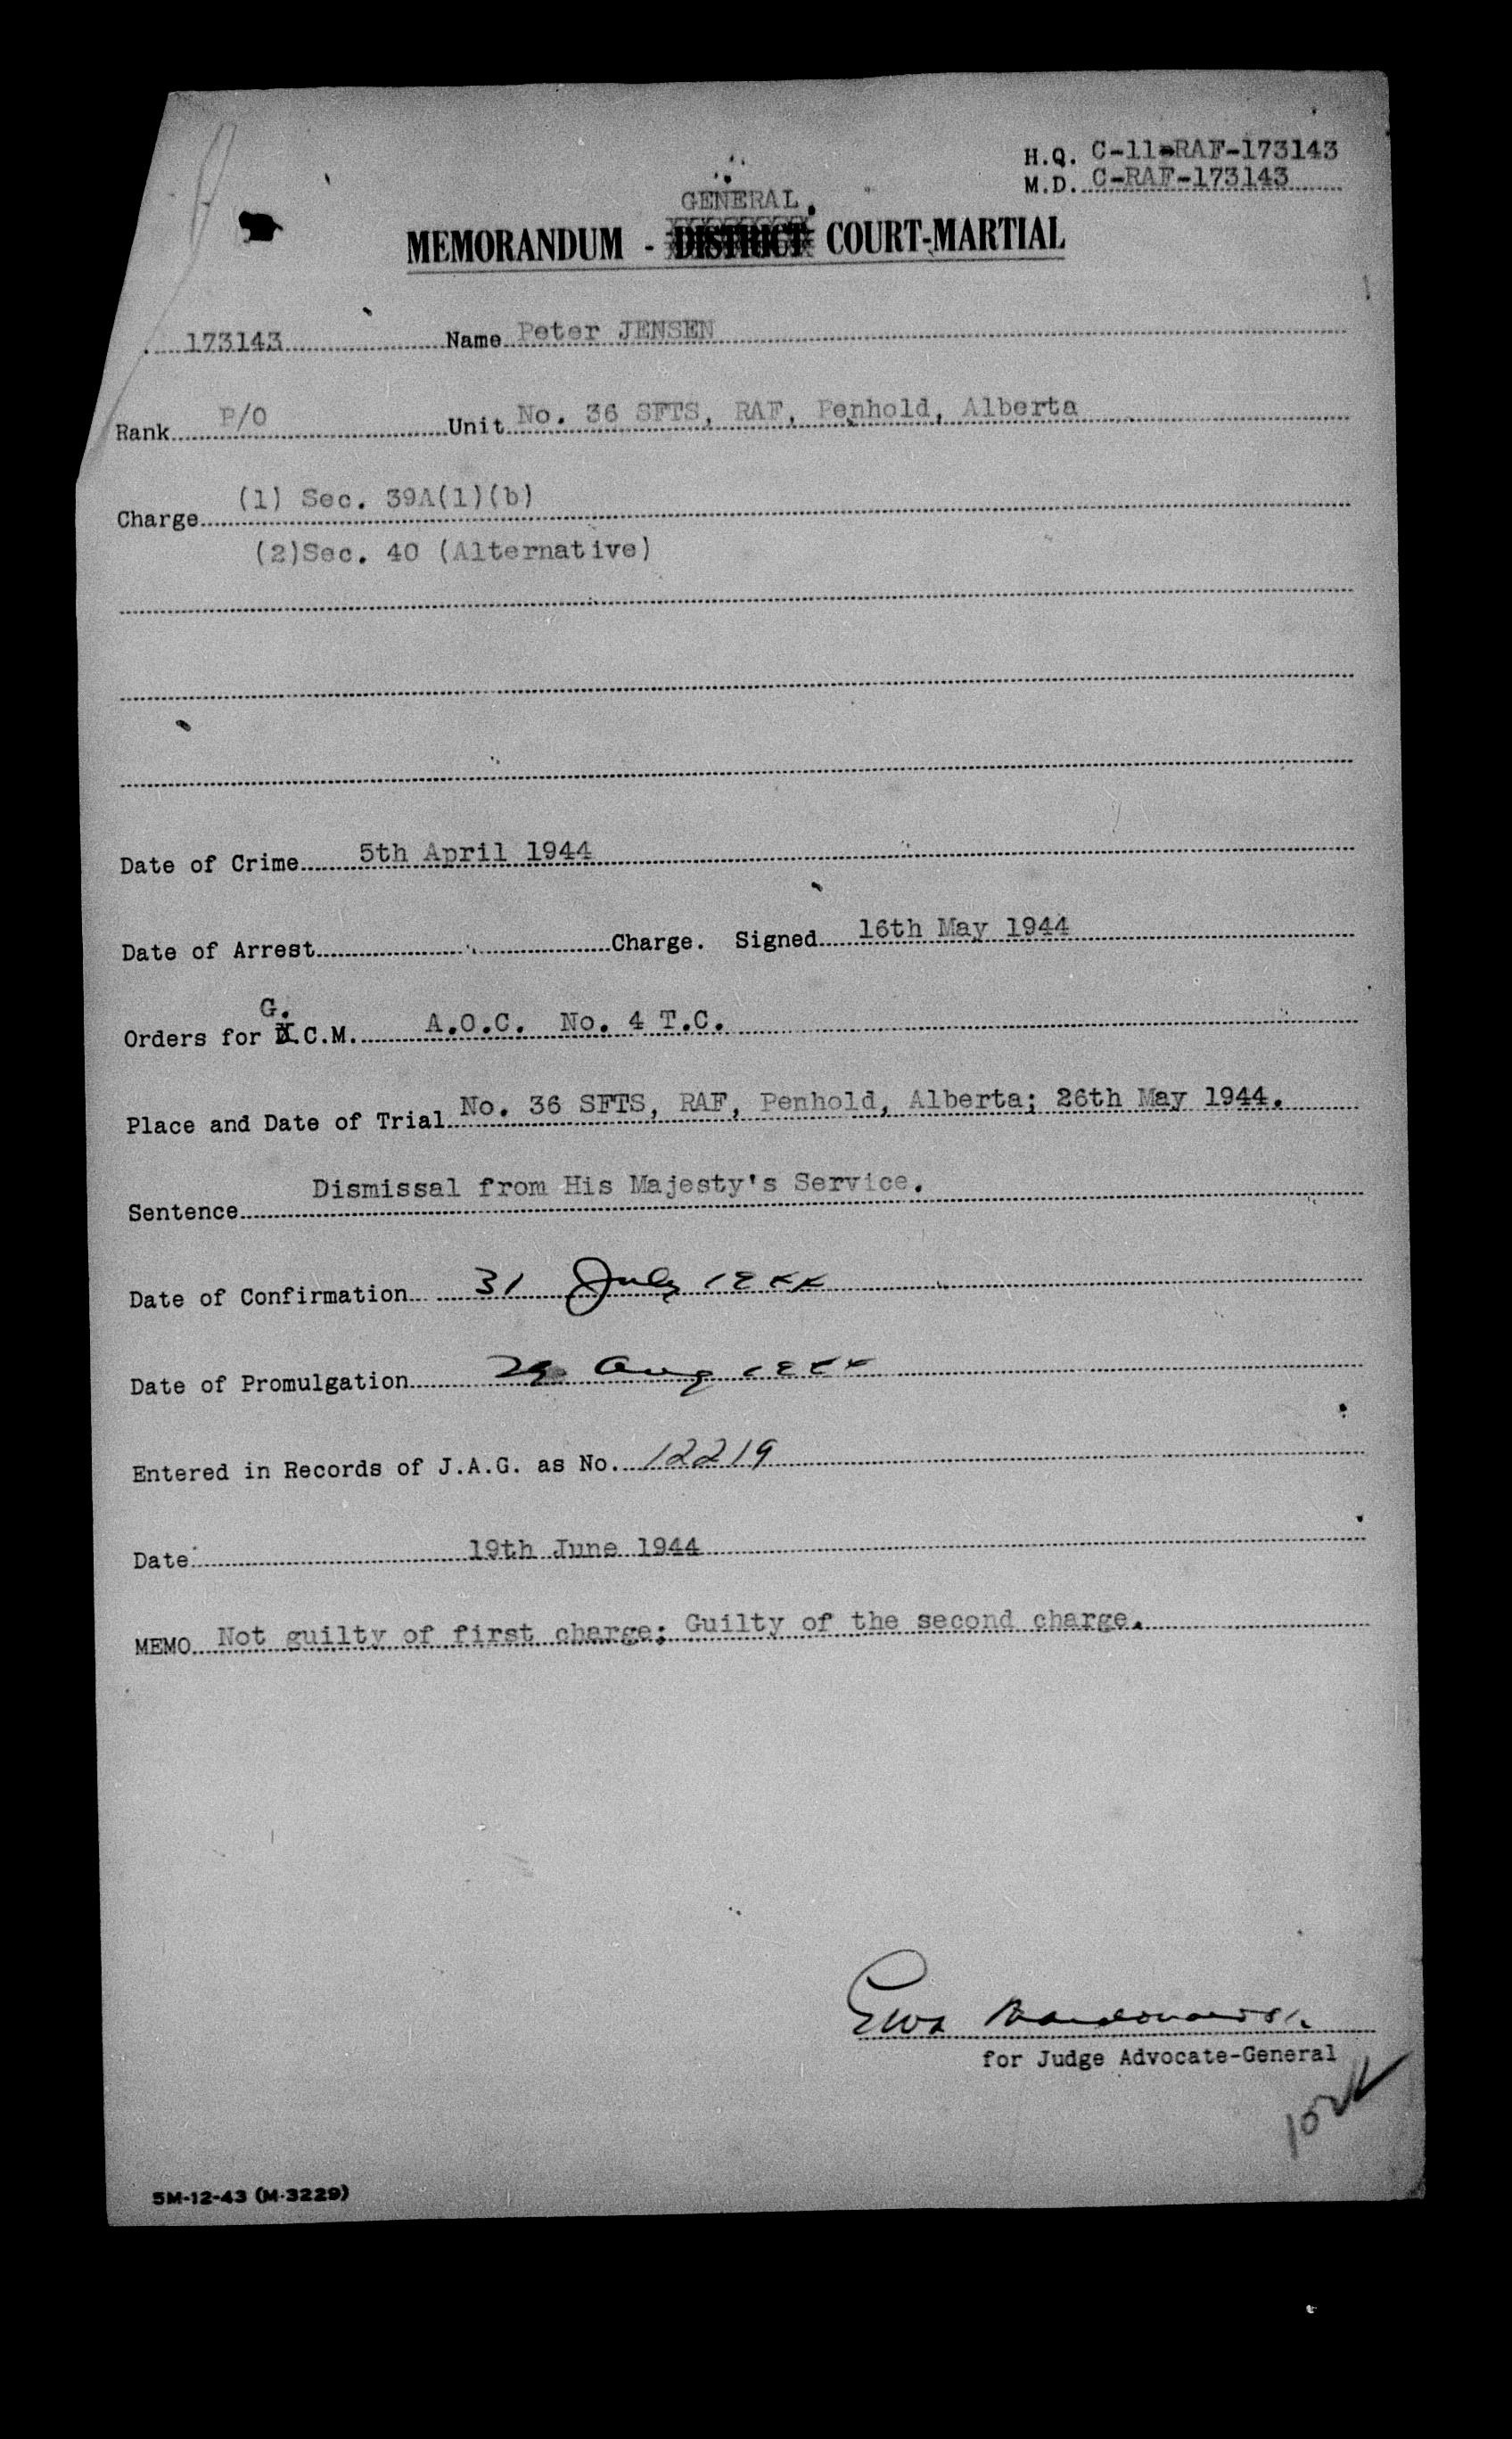 H.Q. C-11-RAF-173143
M.D. C-RAF-173143
GENERAL
MEMORANDUM - DISTRICT COURT-MARTIAL
173143 Name Peter JENSEN
Rank P/O Unit No. 36 SFTS, RAF, Penhold, Alberta
Charge (1) Sec. 39A(1)(b)
(2)Sec. 40 (Alternative)
Date of Crime 5th April 1944
Date of Arrest Charge. Signed 16th May 1944
G.
Orders for D.C.M. A.O.C. No. 4 T.C.
Place and Date of Trial No. 36 SFTS, RAF, Penhold, Alberta; 26th May 1944.
Sentence Dismissal from His Majesty's Service.
Date of Confirmation 31 July 1944
Date of Promulgation 29 Aug 1944
Entered in Records of J.A.G. as No. 12219
Date 19th June 1944
MEMO Not guilty of first charge; Guilty of the second charge.
for Judge Advocate-General
5M-12-43 (M-3229)